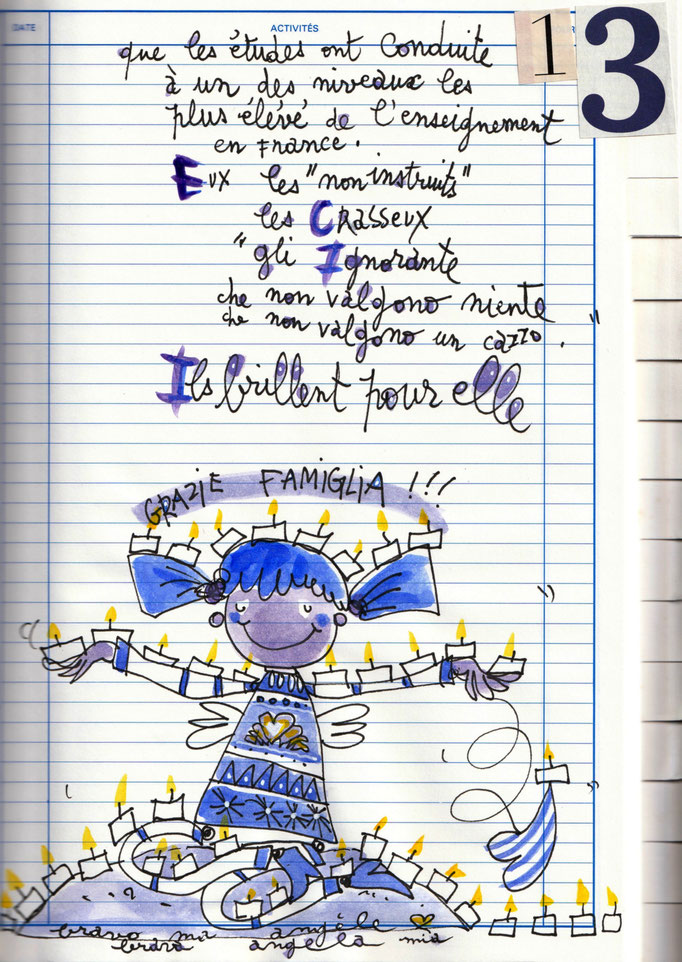 DATE
ACTIVITÉS
13
que les études ont Conduite
à un des niveaux les
plus élévé de l'enseignement
en France.
Eux les "non instruits"
les Crasseux
"gli Ignorante
che non valgono niente
che non valgono un cazzo."
Ils brillent pour elle
GRAZIE FAMIGLIA !!!
bravo ma angèle
brava angela mia